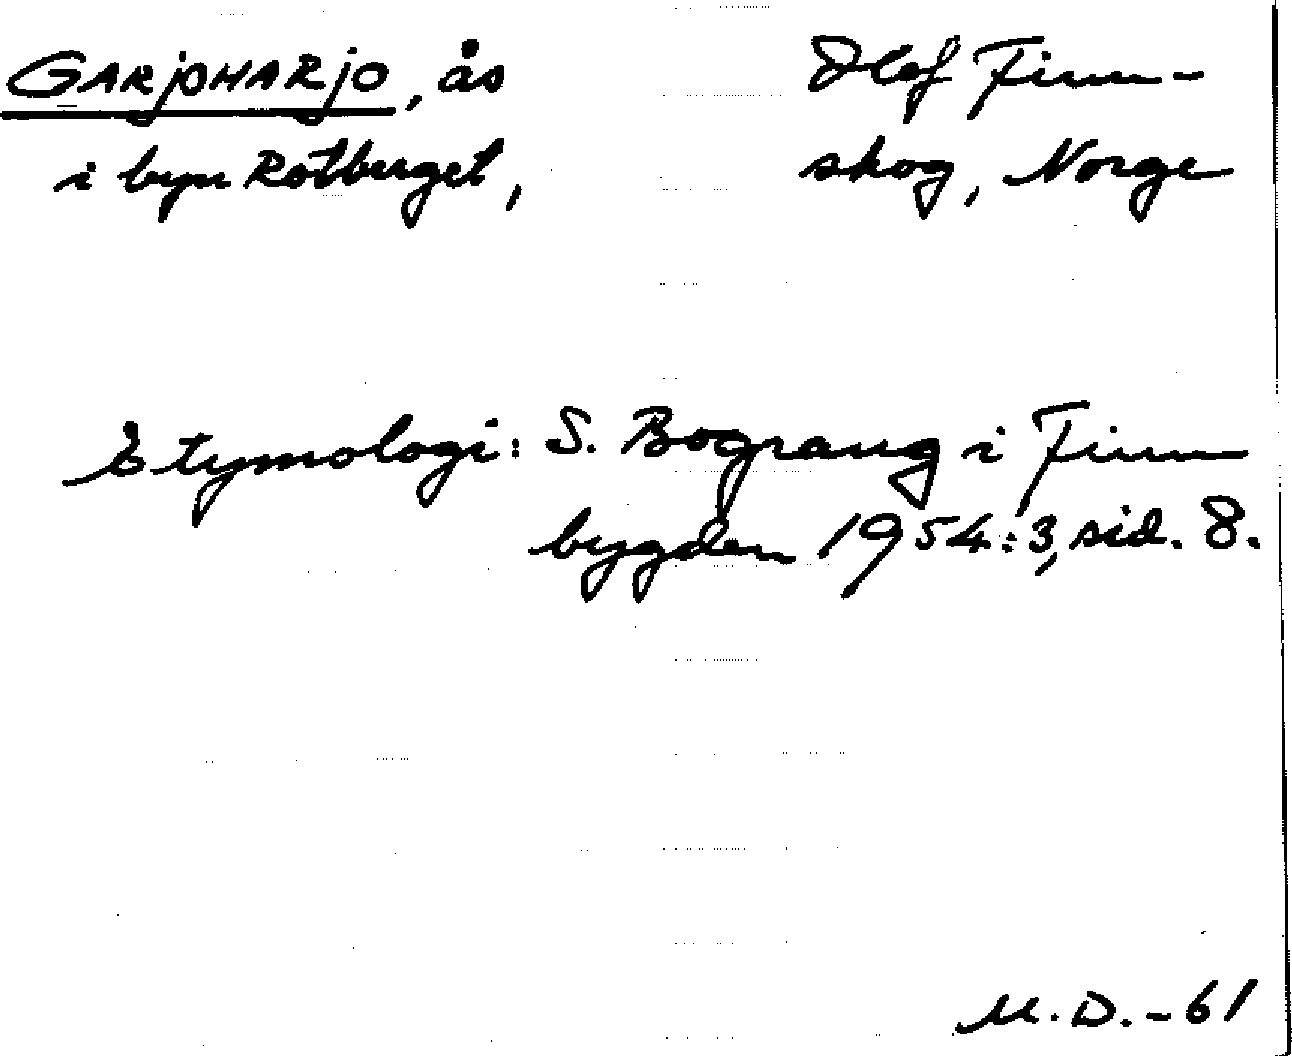 GARjOHARjO, ås
i byn Rotberget,
Olof Finn-
skog, Norge
Etymologi: S. Bograng i Finn
bygden 1954:3, sid. 8.
M.D.-61